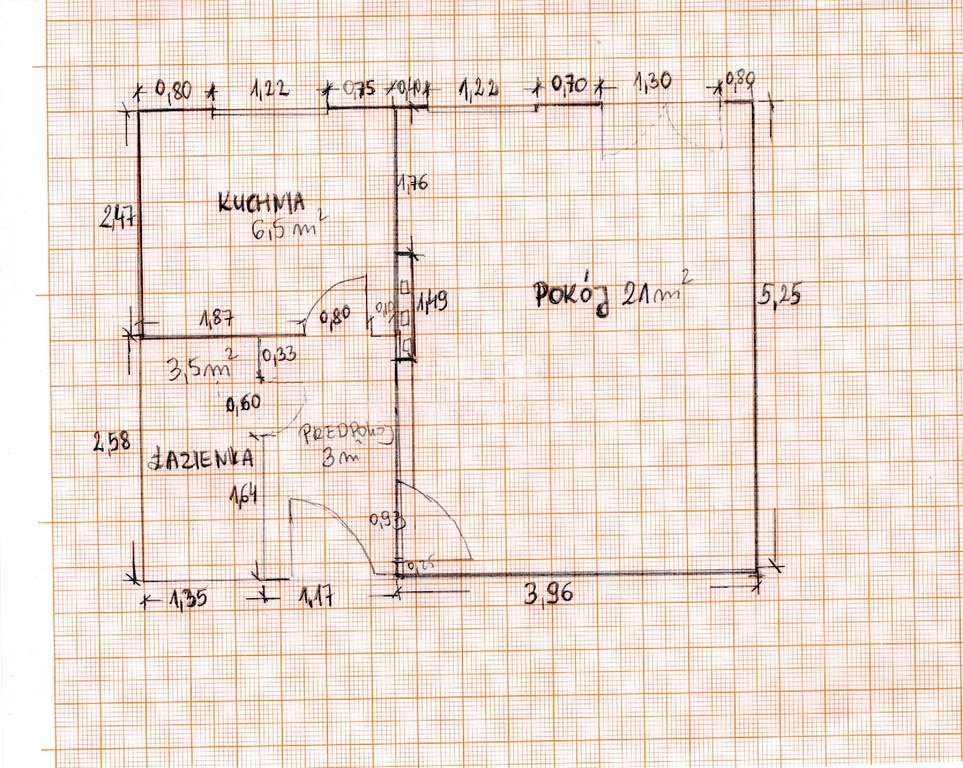 0,80 1,22 0,75 0,40 1,22 0,70 1,30 0,80
1,76
2,47
KUCHNIA
6,5 m²
1,49
POKÓJ 21 m²
5,25
1,87
0,80
0,33
3,5 m²
0,60
PRZEDPOKÓJ
3 m²
2,58
ŁAZIENKA
1,64
0,93
0,25
1,35 1,17 3,96